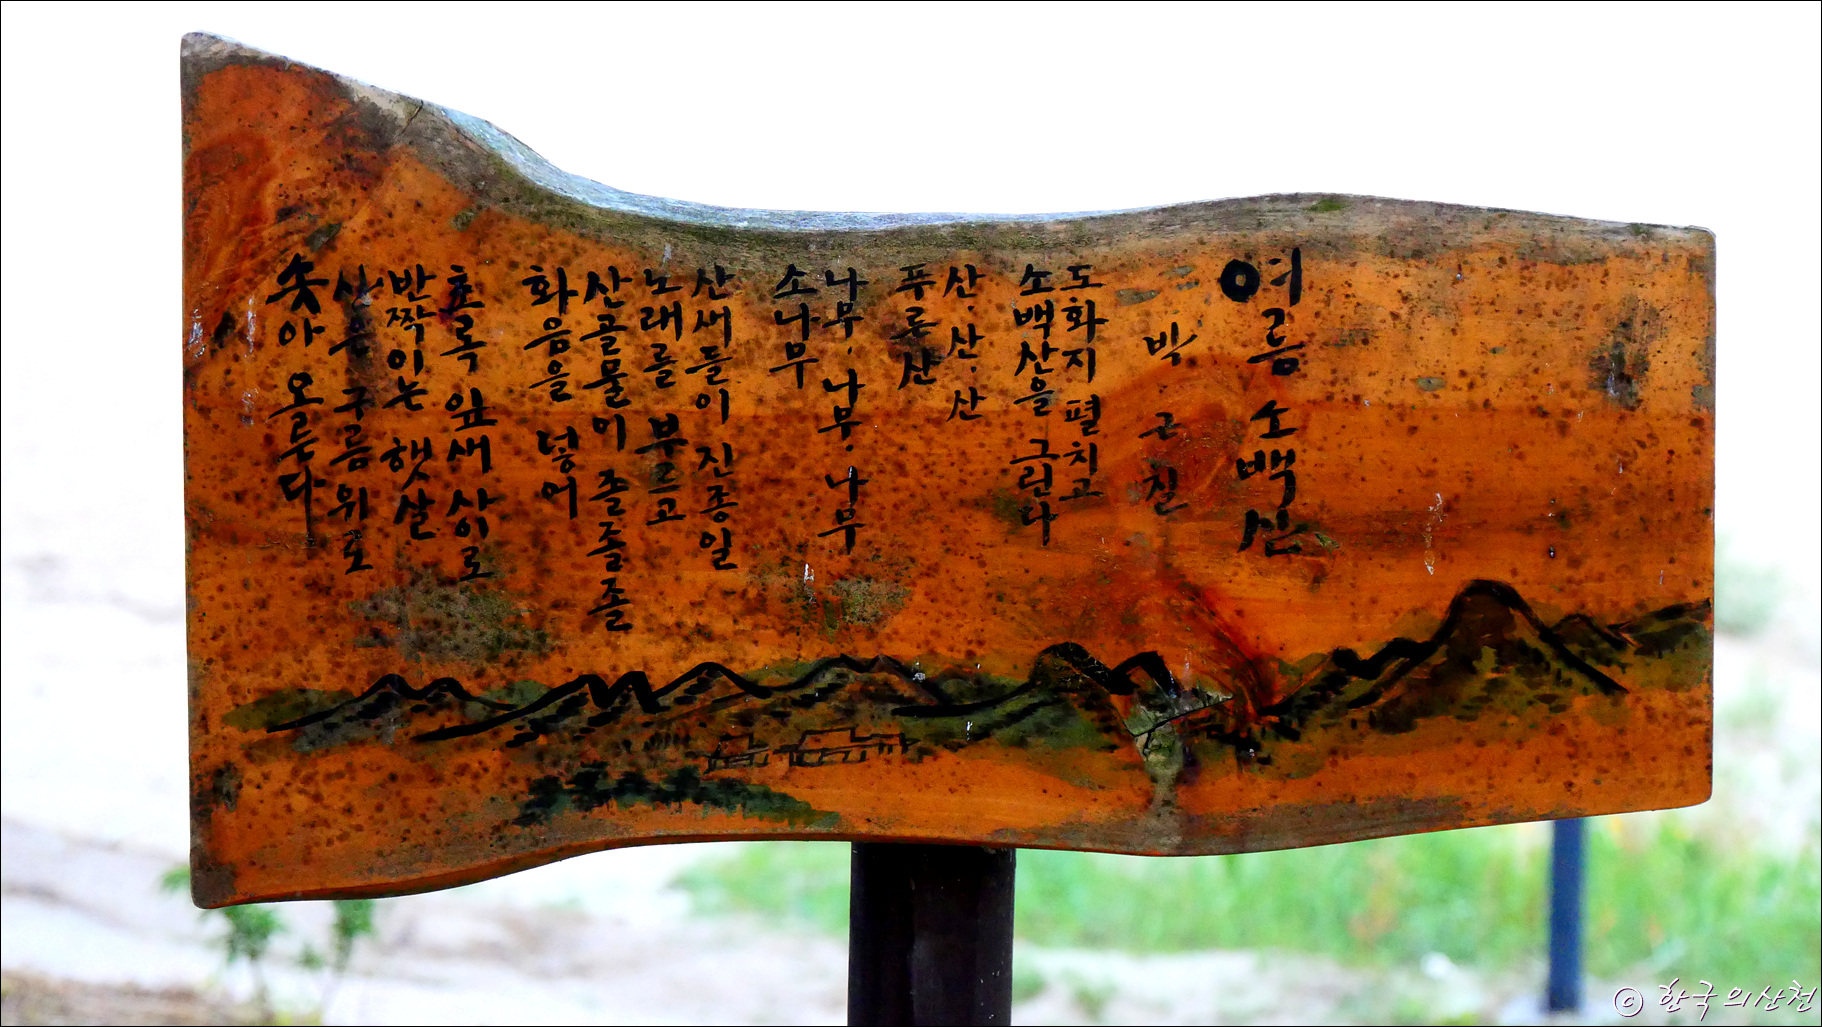 여름 소백산
박근칠
도화지 펼치고
소백산을 그린다
산, 산, 산
푸른산
나무, 나무, 나무
소나무
산새들이 진종일
노래를 부르고
산골물이 졸졸졸
화음을 넣어
초록 잎새 사이로
반짝이는 햇살
산은 구름 위로
솟아 오른다
© 한국의산천